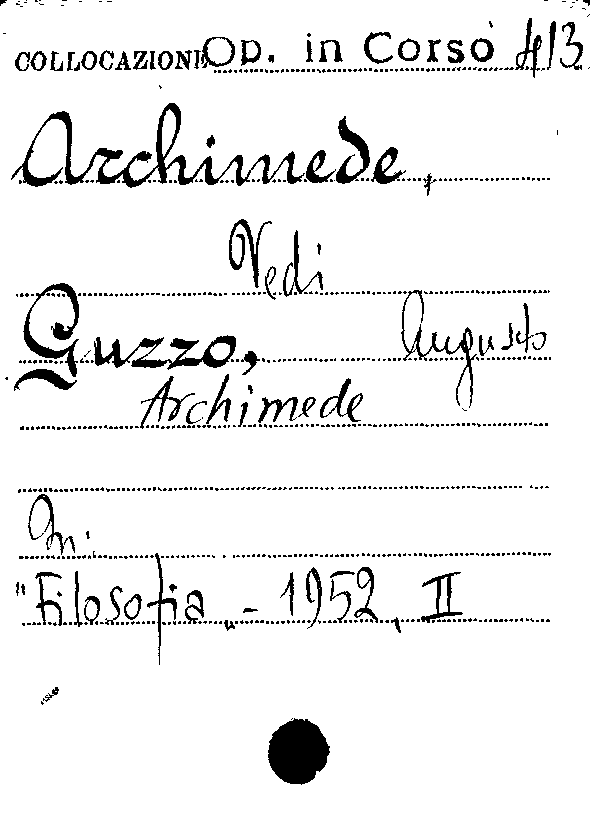 COLLOCAZIONE Op. in Corso 413
Archimede,
Vedi
Guzzo, Augusto
Archimede
In:
"Filosofia„ - 1952, II